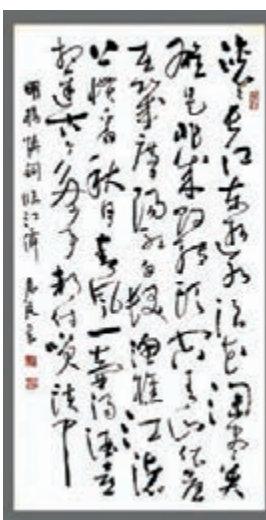 滚々长江东逝水浪花淘尽英
雄是非成败转头空青山依旧
在几度夕阳红白发渔樵江渚
上惯看秋月春风一壶浊酒喜
相逢古今多少事都付笑谈中
明杨慎词临江仙 书